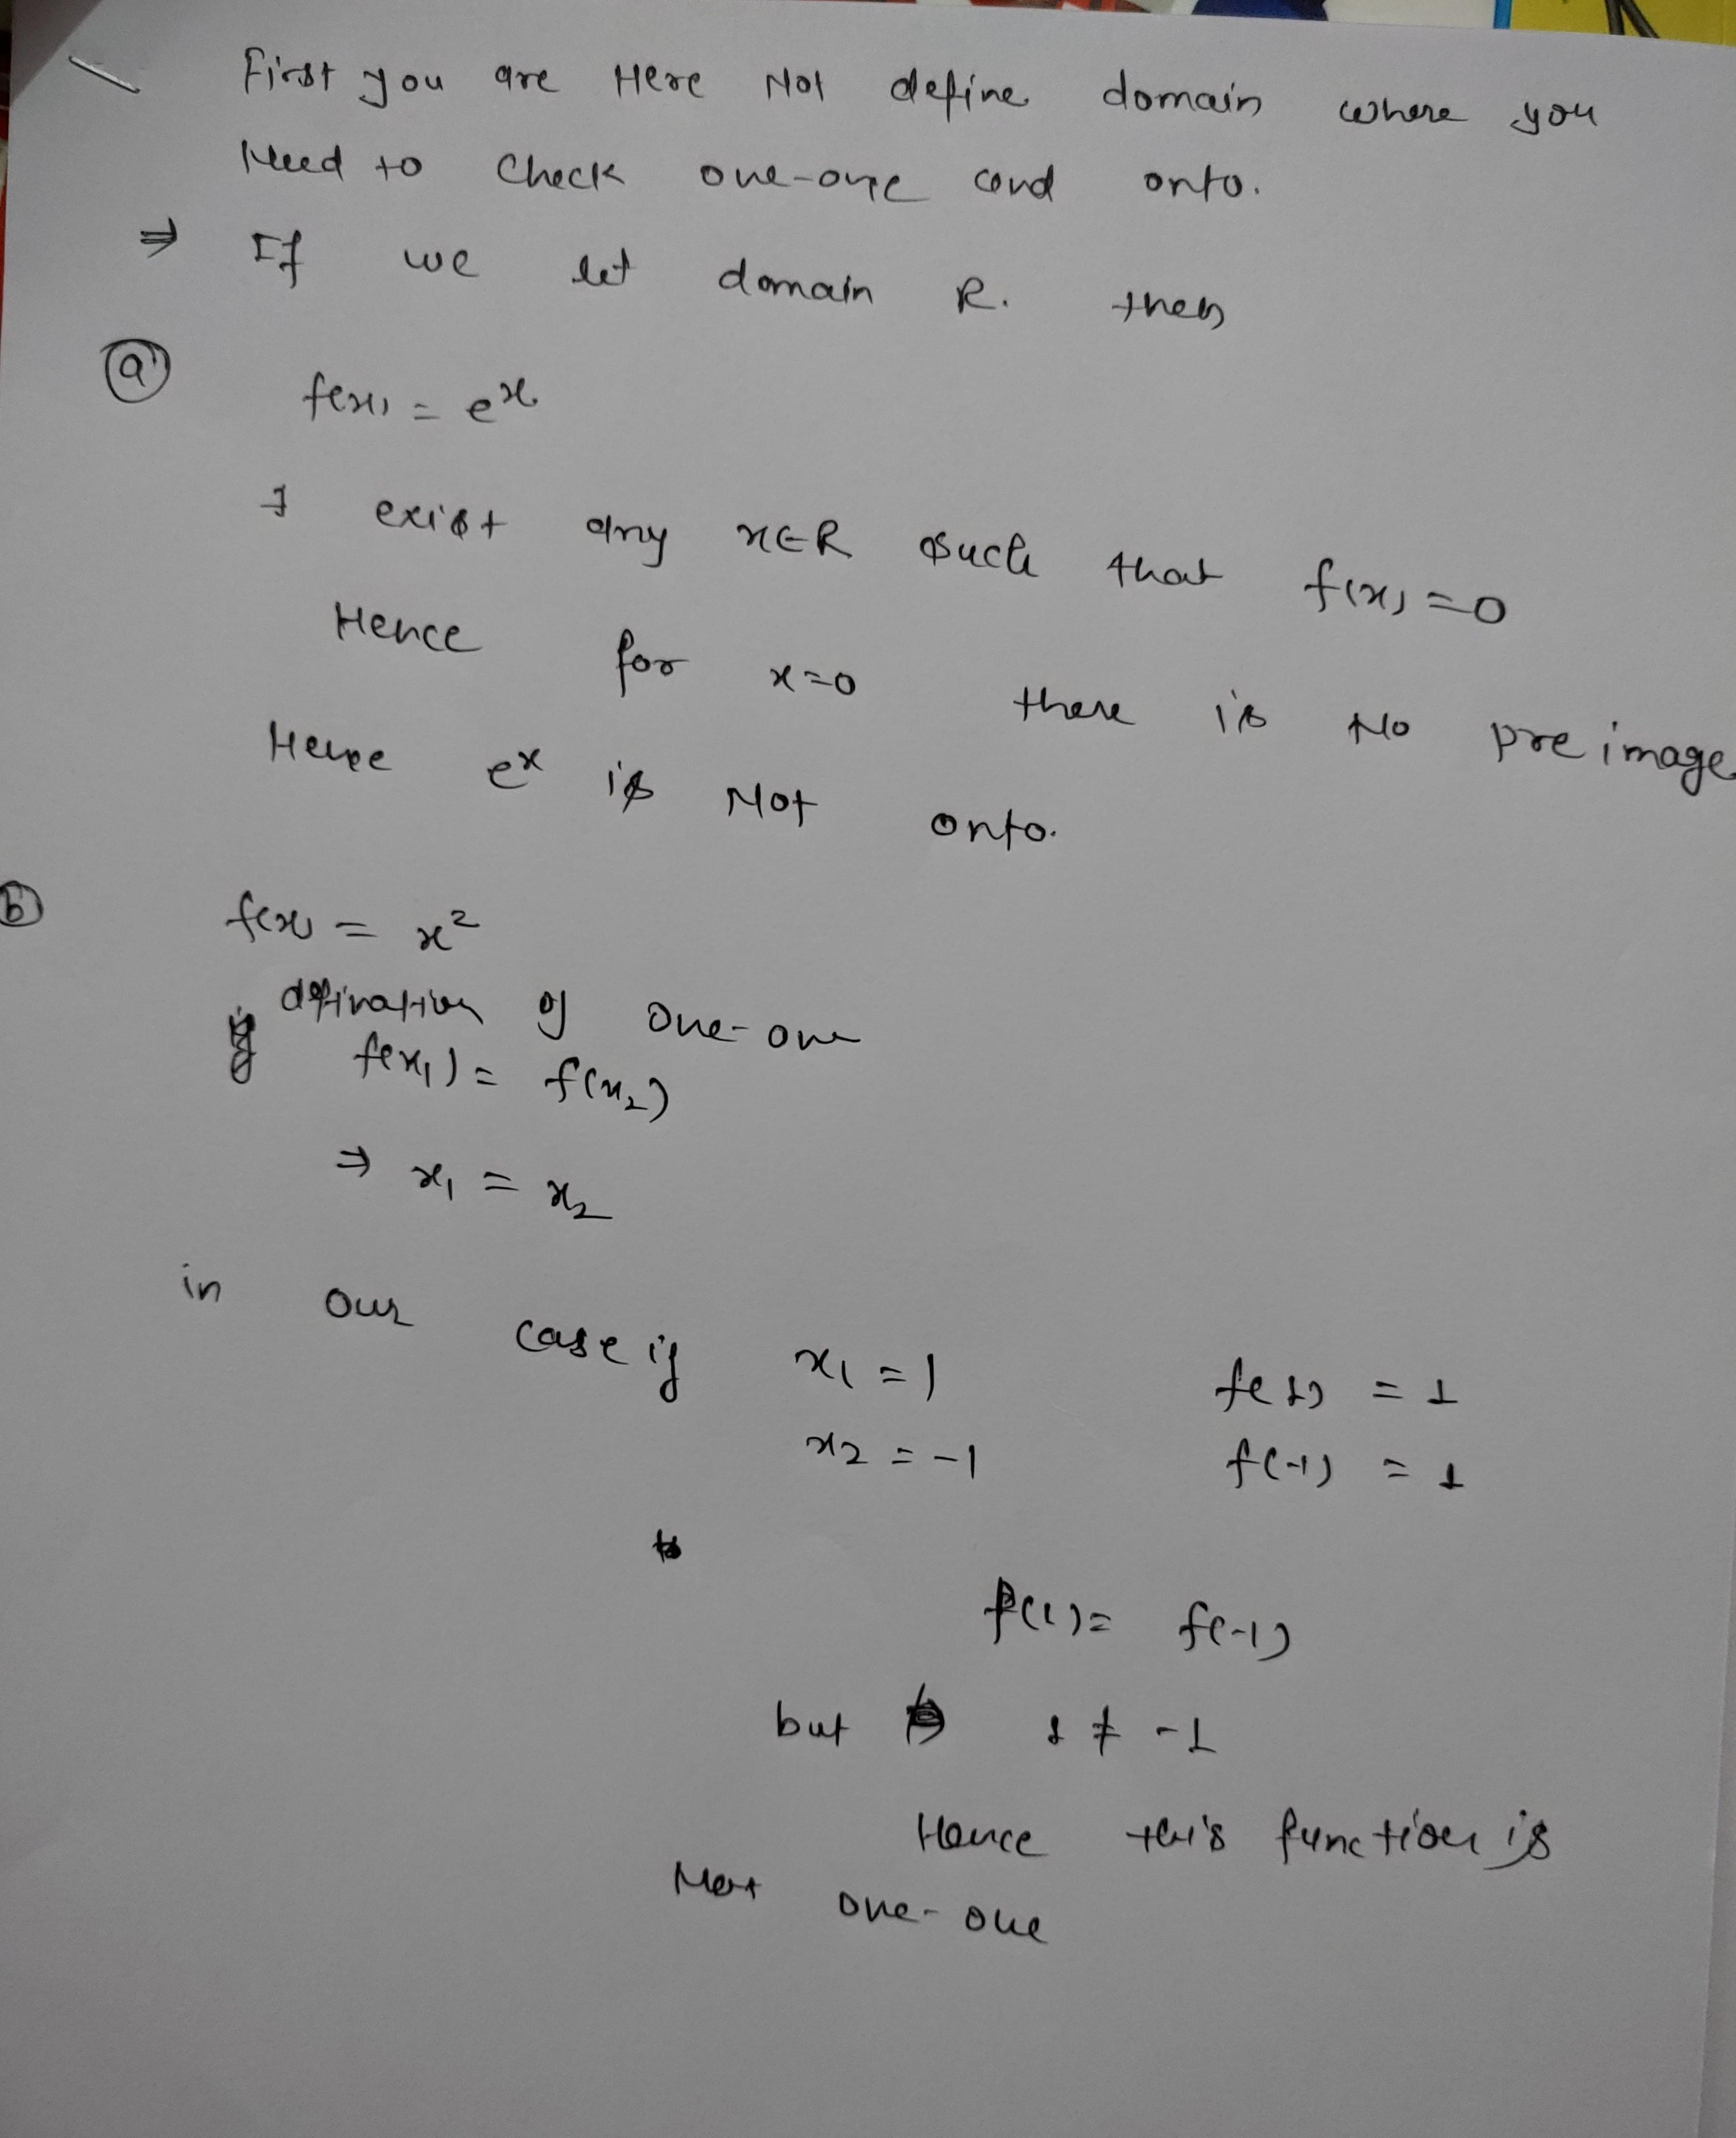 First you are Here Not define domain where you
Need to check one-one and onto.
⇒ If we let domain R. then
(a) f(x) = eˣ
∄ exist any x∈R such that f(x) = 0
Hence for x=0 there is No preimage
Hence eˣ is Not onto.
(b) f(x) = x²
defination of one-one
if f(x₁) = f(x₂)
⇒ x₁ = x₂
in our case if x₁ = 1 f(1) = 1
x₂ = -1 f(-1) = 1
f(1) = f(-1)
but 1 ≠ -1
Hence this function is
Not one-one